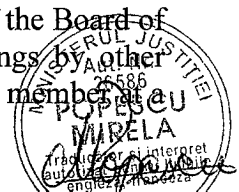 f the Board of
ngs by other
member at a
MINISTERUL JUSTIȚIEI
26586
POPESCU
MIRELA
Traducător și interpret
engleză franceză